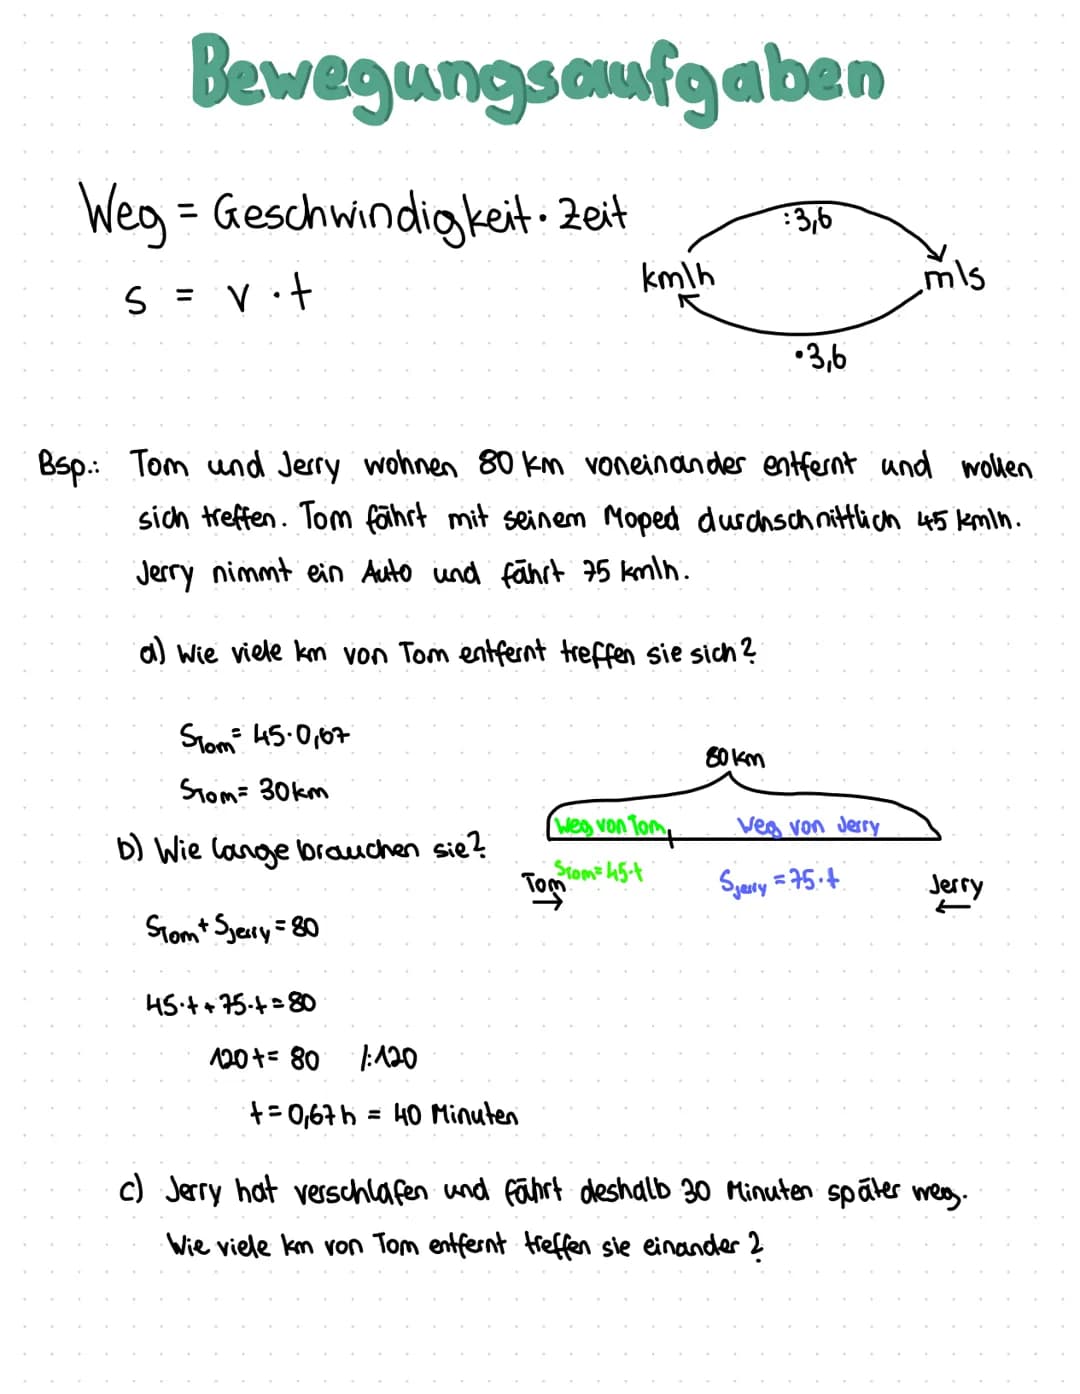 Bewegungsaufgaben
Weg = Geschwindigkeit · Zeit
s = v · t
:3,6
km/h
m/s
·3,6
Bsp.: Tom und Jerry wohnen 80 km voneinander entfernt und wollen
sich treffen. Tom fährt mit seinem Moped durchschnittlich 45 km/h.
Jerry nimmt ein Auto und fährt 75 km/h.
a) Wie viele km von Tom entfernt treffen sie sich?
STom = 45·0,67
STom = 30km
80km
Weg von Tom
Weg von Jerry
b) Wie lange brauchen sie?
Tom
STom = 45·t
SJerry = 75·t
Jerry
STom + SJerry = 80
45·t + 75·t = 80
120t = 80 /:120
t = 0,67h = 40 Minuten
c) Jerry hat verschlafen und fährt deshalb 30 Minuten später weg.
Wie viele km von Tom entfernt treffen sie einander?